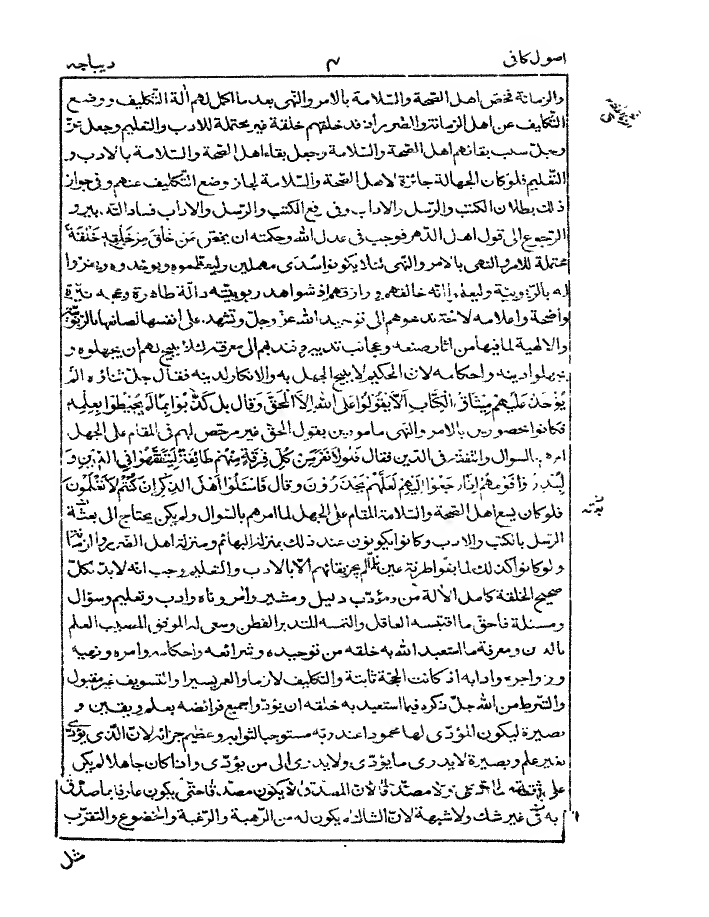 اصول کافی ۴ دیباجه
والزمانة فخص اهل الصحة والسلامة بالامر والنهی بعد ما اکمل لهم آلة التکلیف ووضع
التکلیف عن اهل الزمانة والضرر اذ قد خلقهم خلقة غیر محتملة للادب والتعلیم وجعل عز
وجل سبب بقائهم اهل الصحة والسلامة وجعل بقاء اهل الصحة والسلامة بالادب و
التعلیم فلو کان الجهالة جائزة لاهل الصحة والسلامة لجاز وضع التکلیف عنهم وفی جواز
ذلک بطلان الکتب والرسل والاداب وفی رفع الکتب والرسل والاداب فساد التدبیر و
الرجوع الی قول اهل الدهر فوجب فی عدل الله وحکمته ان یخص من خلق من خلقه خلقة
محتملة للامر والنهی بالامر والنهی لئلا یکونوا سدی مهملین ولیعظموه ویوحدوه ویقروا
له بالربوبیة ولیعلموا انه خالقهم ورازقهم اذ شواهد ربوبیته دالة ظاهرة وحججه نیرة
واضحة واعلامه لائحة تدعوهم الی توحید الله عز وجل وتشهد علی انفسها لصانعها بالربوبیة
والالهیة لما فیها من اثار صنعه وعجائب تدبیره فندبهم الی معرفته لئلا یبیح لهم ان یجهلوه و
یجهلوا دینه واحکامه لان الحکیم لا یبیح الجهل به والانکار لدینه فقال جل ثناؤه الم
یؤخذ علیهم میثاق الکتاب الا یقولوا علی الله الا الحق وقال بل کذبوا بما لم یحیطوا بعلمه
فکانوا محصورین بالامر والنهی مامورین بقول الحق غیر مرخص لهم فی المقام علی الجهل
امرهم بالسوال والتفقه فی الدین فقال فلولا نفر من کل فرقة منهم طائفة لیتفقهوا فی الدین و
لینذروا قومهم اذا رجعوا الیهم لعلهم یحذرون وقال فاسئلوا اهل الذکر ان کنتم لا تعلمون
فلو کان یسع اهل الصحة والسلامة المقام علی الجهل لما امرهم بالسوال ولم یکن یحتاج الی بعثة
الرسل بالکتب والادب وکانوا یکونون عند ذلک بمنزلة البهائم ومنزلة اهل الضرر والزمانة
ولو کانوا کذلک لما بقوا طرفة عین فلما لم یجز بقائهم الا بالادب والتعلیم وجب انه لابد لکل
صحیح الخلقة کامل الالة من مؤدب ودلیل ومشیر وامر وناه وادب وتعلیم وسؤال
ومسئلة فاحق ما اقتبسه العاقل والتمسه المتدبر الفطن وسعی له الموفق المصیب العلم
بالدین ومعرفة ما استعبد الله به خلقه من توحیده وشرائعه واحکامه وامره ونهیه
وزواجره وادابه اذ کانت الحجة ثابتة والتکلیف لازما والعمر یسیرا والتسویف غیر مقبول
والشرط من الله جل ذکره فیما استعبد به خلقه ان یؤدوا جمیع فرائضه بعلم ویقین و
بصیرة لیکون المؤدی لها محمودا عند ربه مستوجبا لثوابه وعظیم جزائه لان الذی یؤدی
بغیر علم وبصیرة لا یدری ما یؤدی ولا یدری الی من یؤدی واذا کان جاهلا لم یکن
علی ثقة مما ادی ولا مصدقا لان المصدق لا یکون مصدقا حتی یکون عارفا بما صدق
به من غیر شک ولا شبهة لان الشاک لا یکون له من الرهبة والرغبة والخضوع والتقرب
مثل